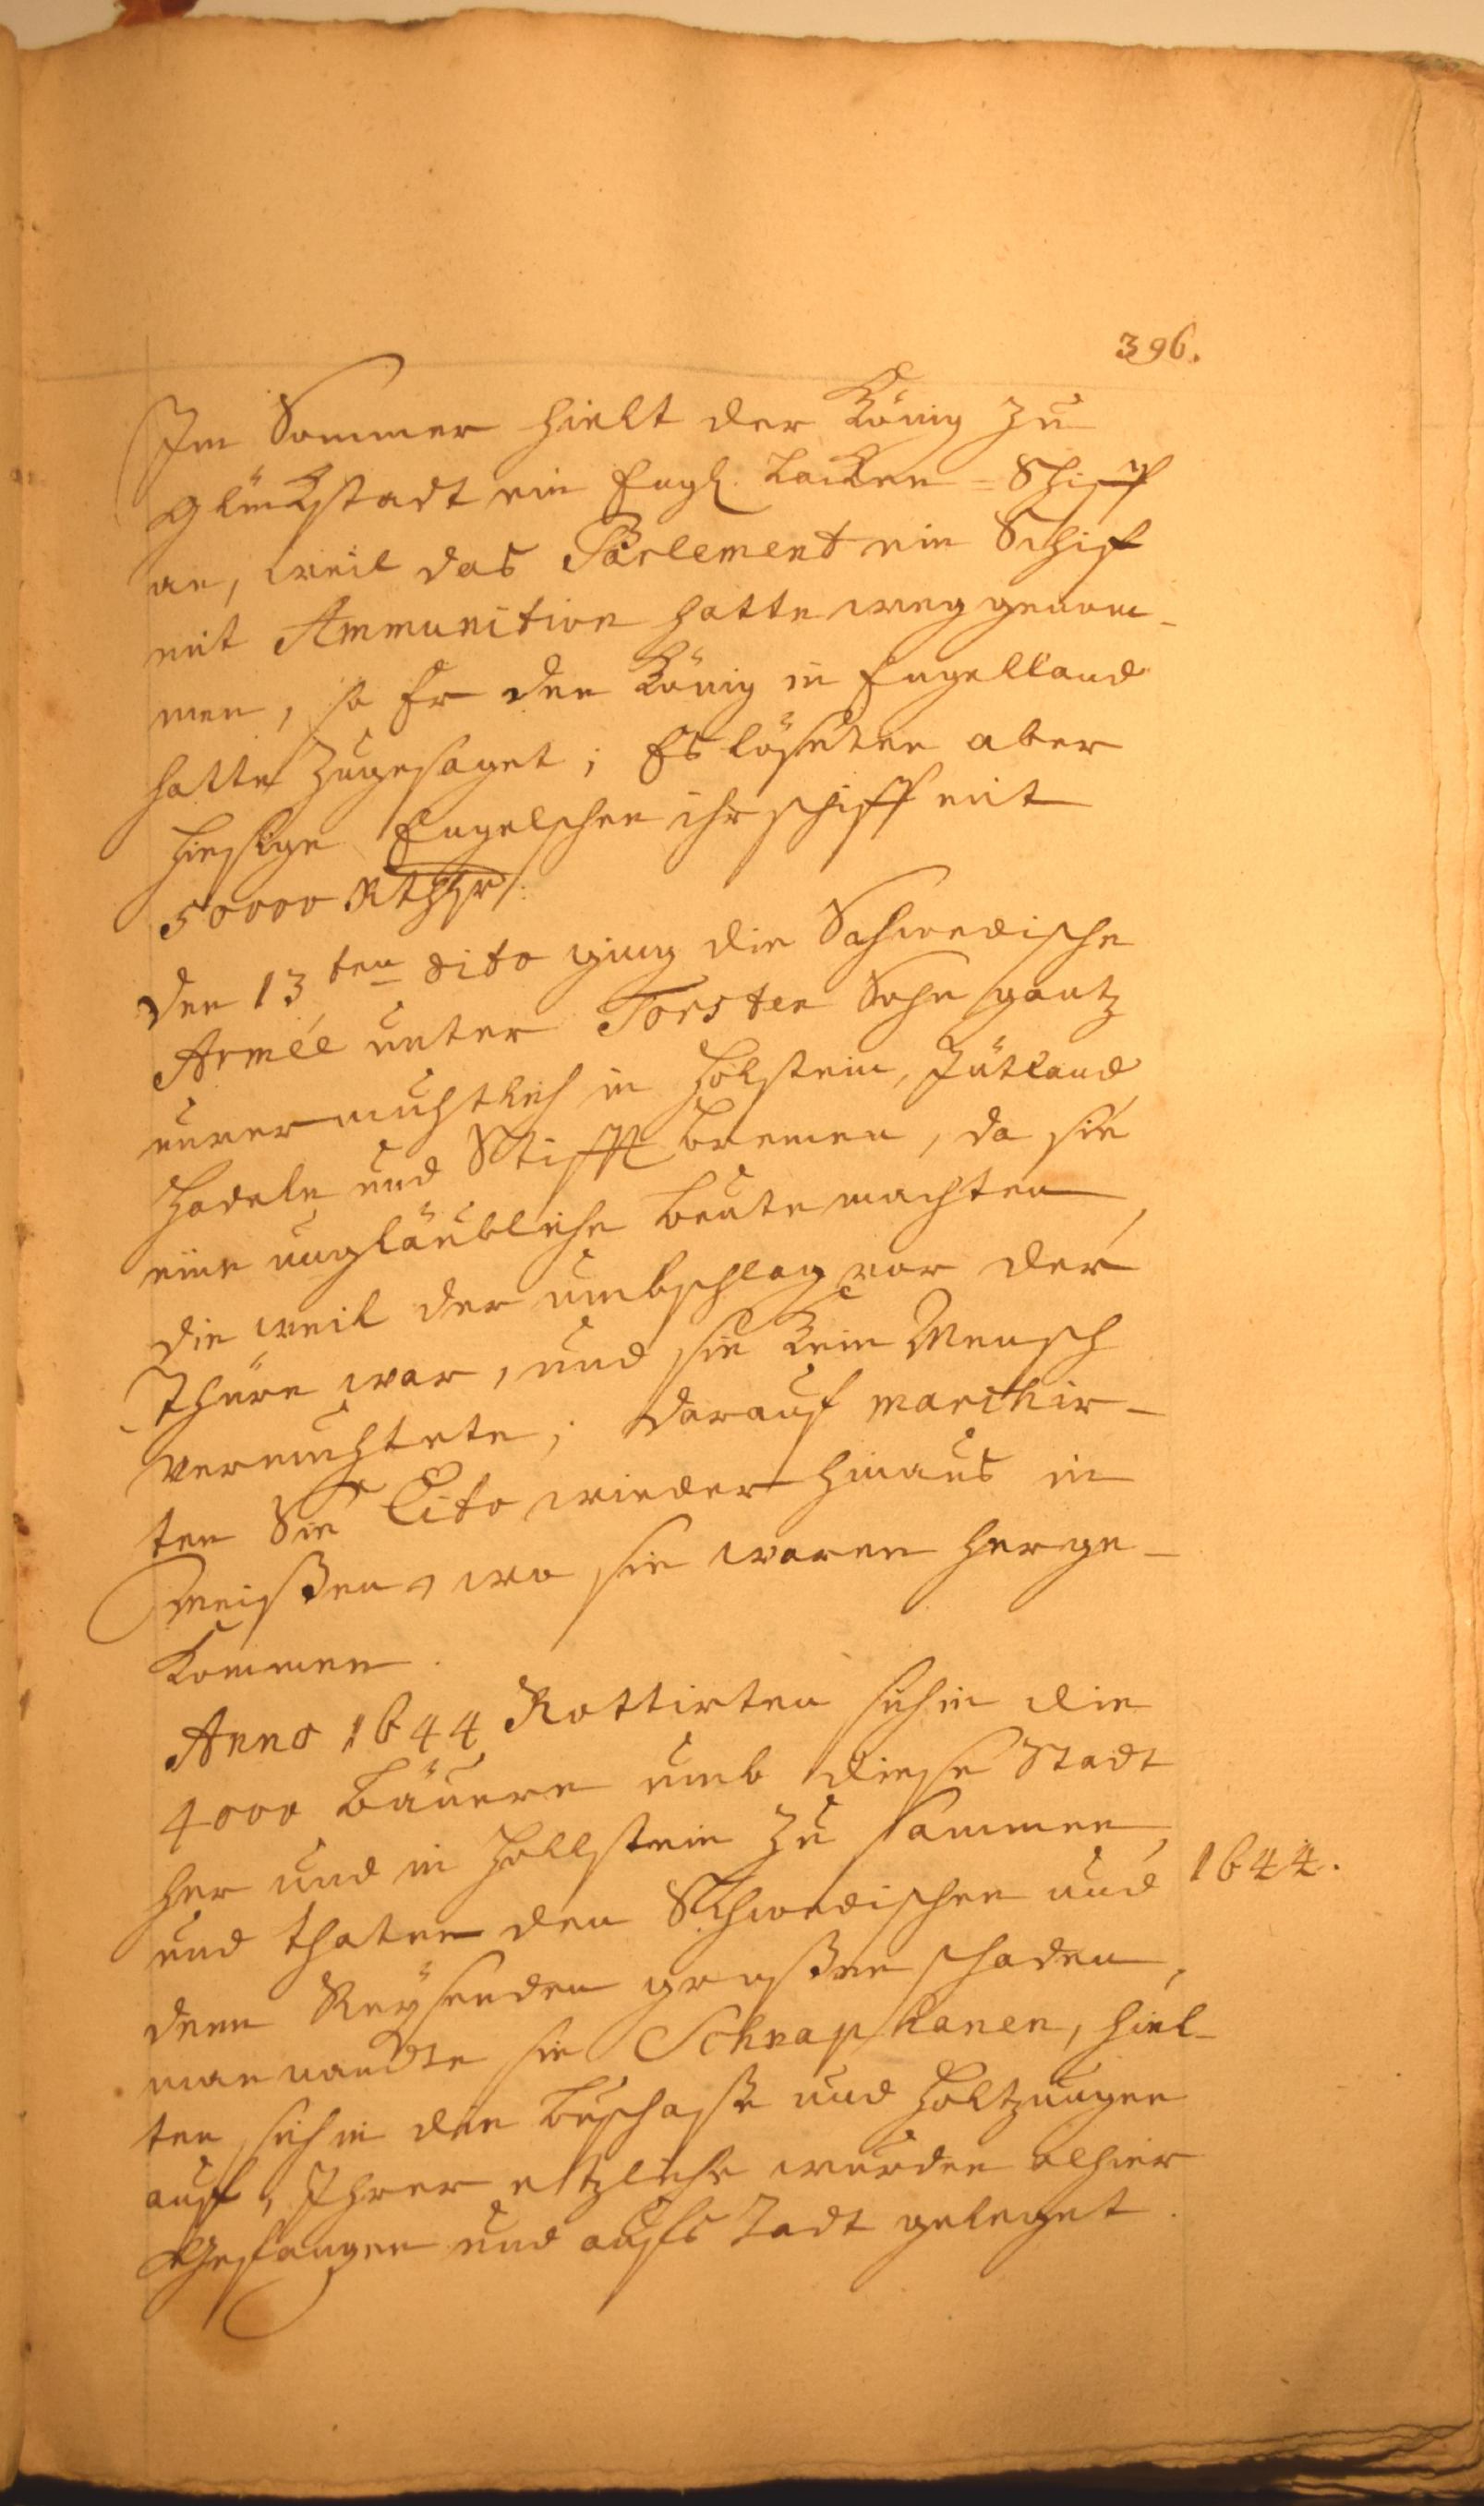 396.
Im Sommer hielt der König zu
Glückstadt ein Engl. Lacken-Schiff
an, weil das Parlement ein Schif
mit Ammunition hatte weg genom-
men, so Er den König in Engelland
hatte zugesaget; Es löseten aber
hiesige Engelschen ihr schiff mit
50000 Rthlr.
Den 13ten dito ging die Schwedische
Armée unter Torsten Sohn gantz
unvermuhtlich in Holstein, Jütland
Hadeln und Stifft Bremen, da sie
eine ungläubliche beute machten,
die weil der umbschlag vor der
Thüre war, und sie kein Mensch
vermuhtete; darauf marchir-
ten Sie Cito wieder hinaus in
Meißen, wo sie waren herge-
kommen.
Anno 1644 Rottirten sich in die
4000 Bäuern umb diese Stadt
her und in Hollstein zu sammen,
und thaten den Schwedischen und
1644.
denn Reysenden großen schaden,
man nandte sie Schnaphanen, hiel-
ten sich in den und Höltzungen
auf, Ihrer etzliche wurden alhier
Gefangen und aufs Radt geleget.